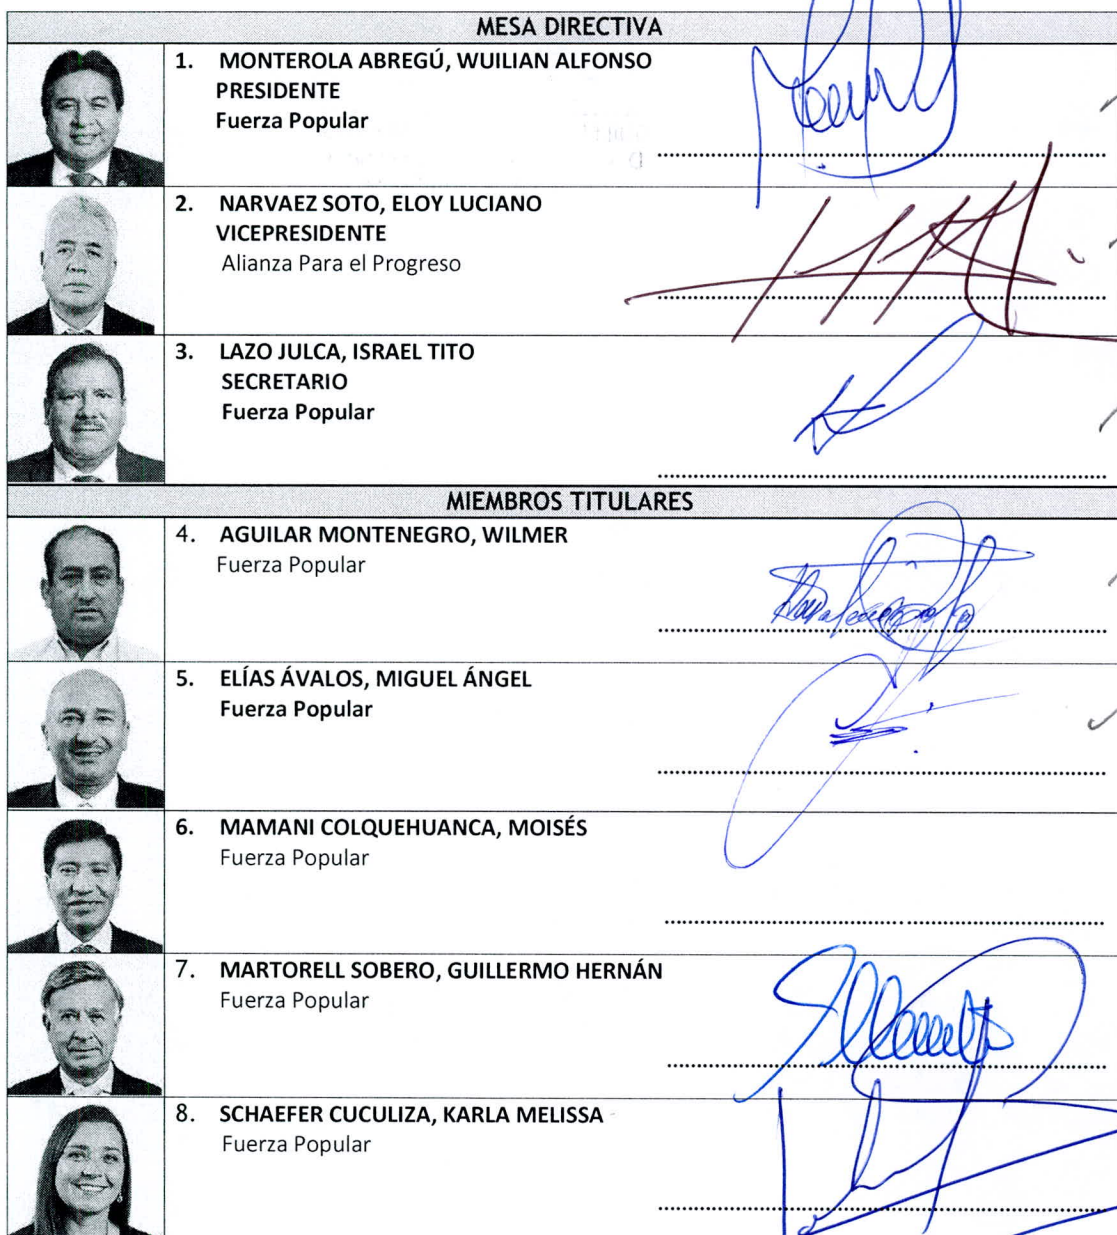 MESA DIRECTIVA
1. MONTEROLA ABREGÚ, WUILIAN ALFONSO
PRESIDENTE
Fuerza Popular
2. NARVAEZ SOTO, ELOY LUCIANO
VICEPRESIDENTE
Alianza Para el Progreso
3. LAZO JULCA, ISRAEL TITO
SECRETARIO
Fuerza Popular
MIEMBROS TITULARES
4. AGUILAR MONTENEGRO, WILMER
Fuerza Popular
5. ELÍAS ÁVALOS, MIGUEL ÁNGEL
Fuerza Popular
6. MAMANI COLQUEHUANCA, MOISÉS
Fuerza Popular
7. MARTORELL SOBERO, GUILLERMO HERNÁN
Fuerza Popular
8. SCHAEFER CUCULIZA, KARLA MELISSA
Fuerza Popular